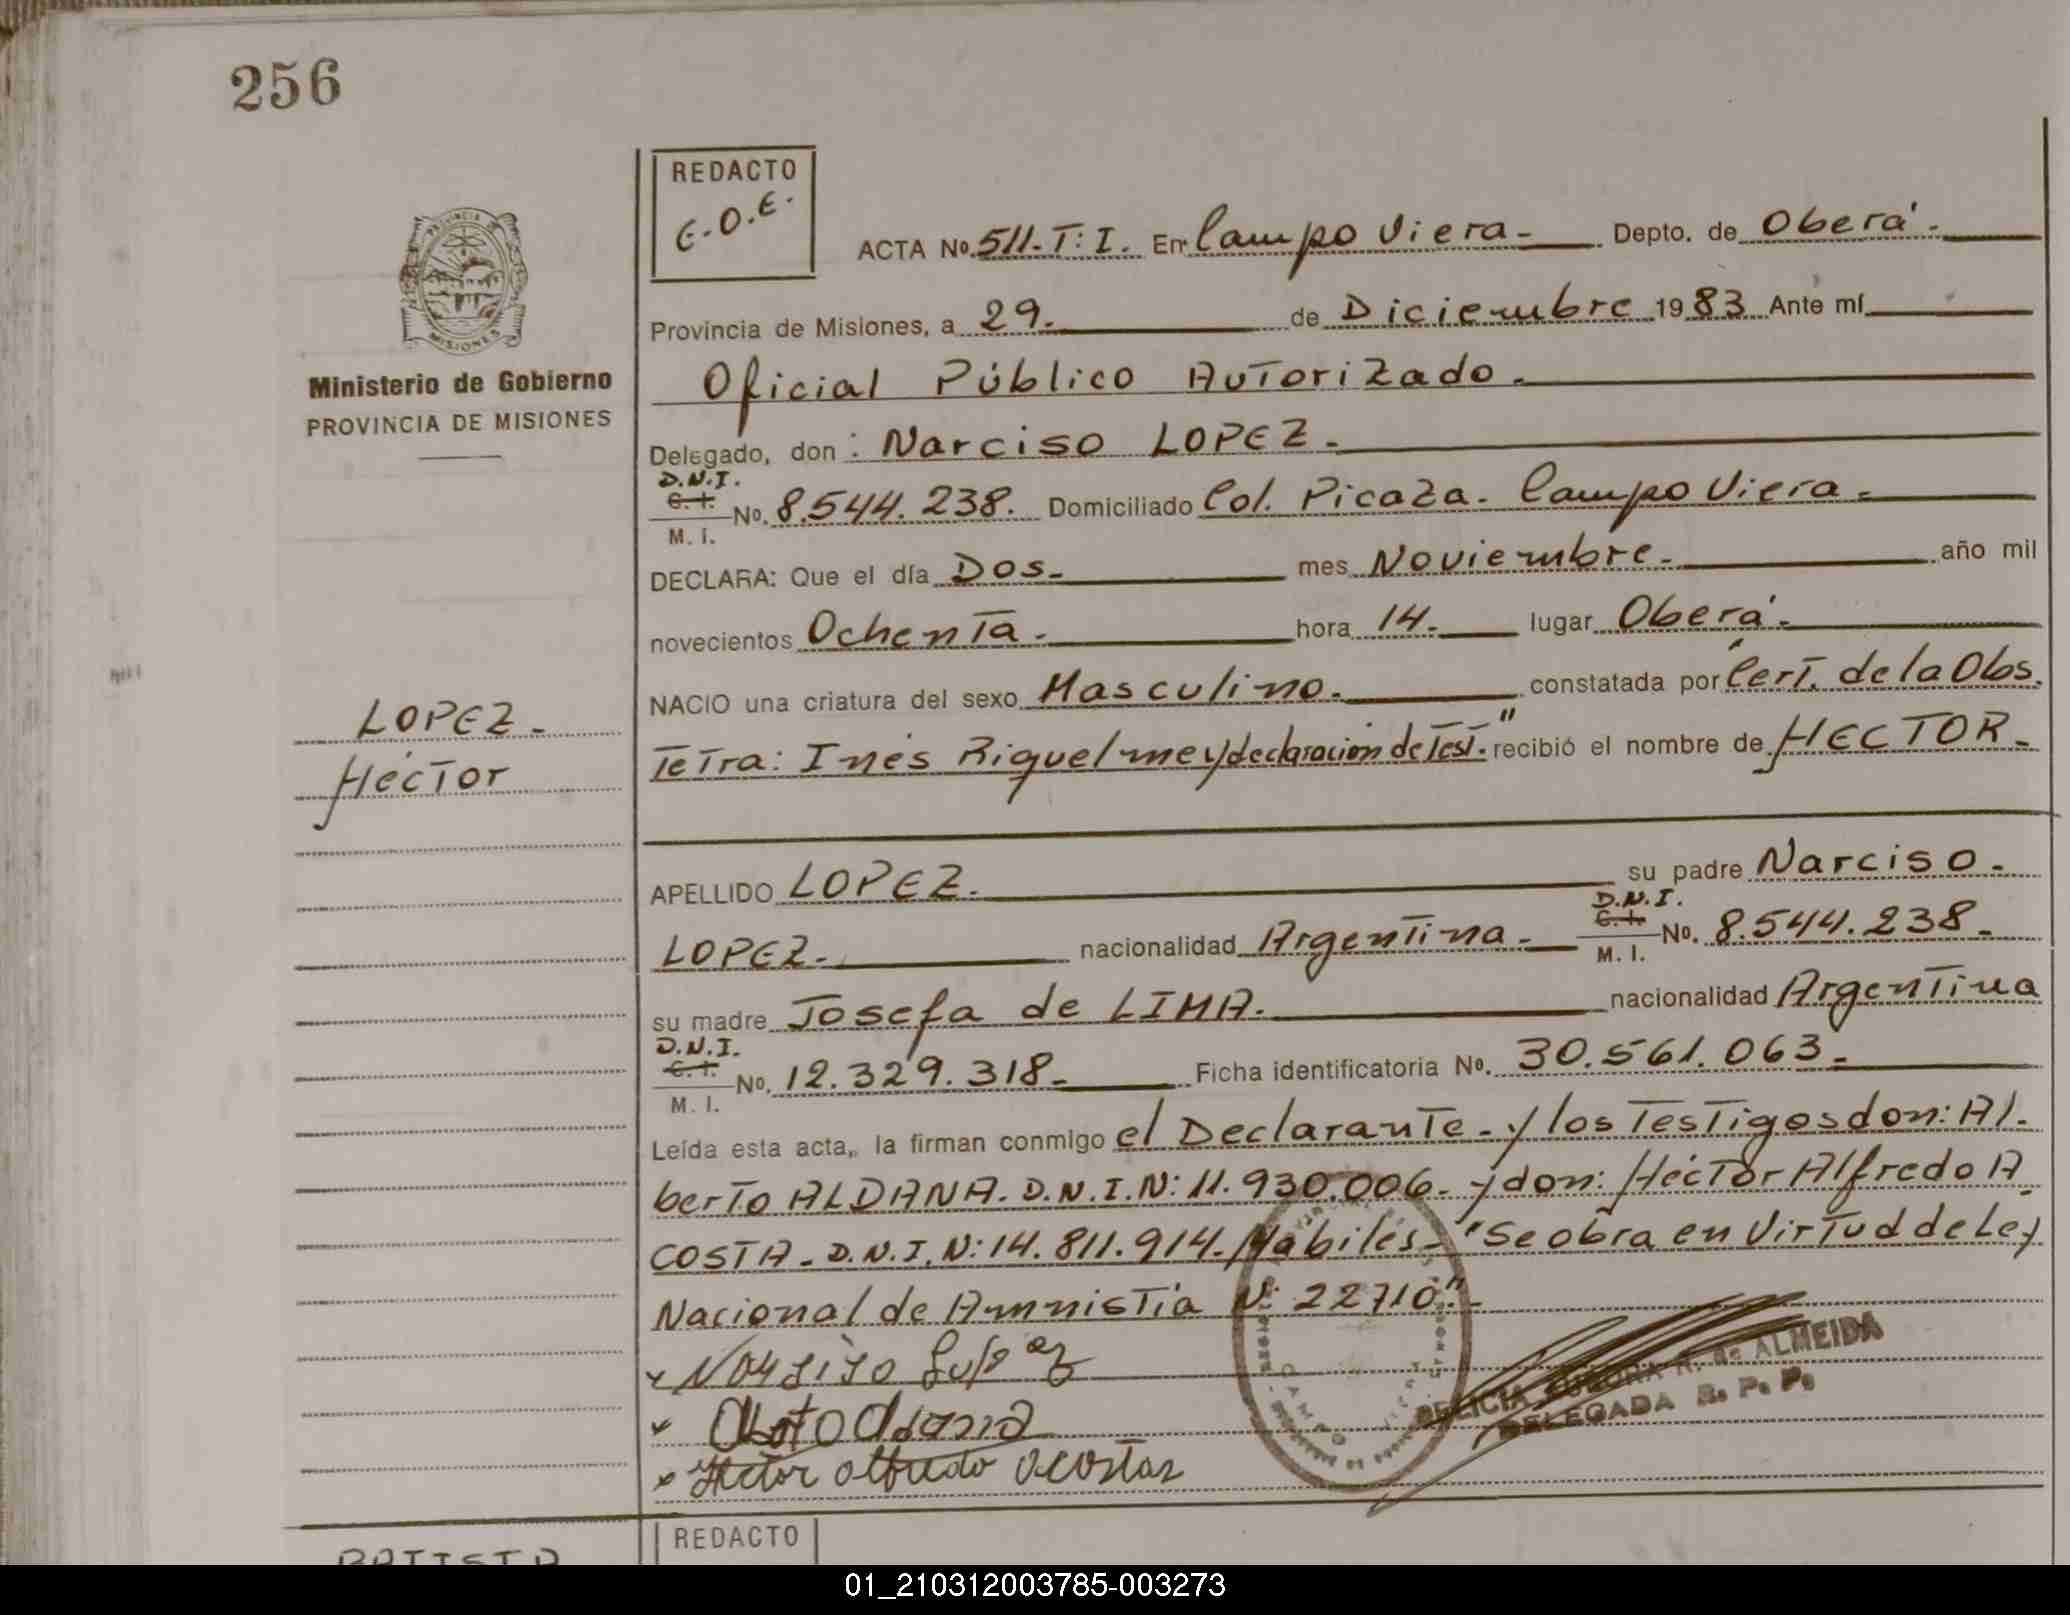 256
REDACTO
E.O.E.
ACTA No. 511. T: I. En Campo Viera. Depto. de Oberá.
PROVINCIA DE MISIONES
Provincia de Misiones, a 29. de Diciembre 1983 Ante mí
Ministerio de Gobierno
PROVINCIA DE MISIONES
Oficial Público Autorizado.
Delegado, don: Narciso LOPEZ.
D.N.I.
C. I. No. 8.544.238. Domiciliado Col. Picaza. Campo Viera.
M. I.
DECLARA: Que el día Dos. mes Noviembre. año mil
novecientos Ochenta. hora 14. lugar Oberá.
NACIO una criatura del sexo Masculino. constatada por Cert. de la Obs.
LOPEZ.
Héctor
tetra: Inés Riquelme y declaración de Test." recibió el nombre de HECTOR.
APELLIDO LOPEZ. su padre Narciso.
D.N.I.
LOPEZ. nacionalidad Argentina. C. I. No. 8.544.238.
M. I.
su madre Josefa de LIMA. nacionalidad Argentina
D.N.I.
C. I. No. 12.329.318. Ficha identificatoria No. 30.561.063.
M. I.
Leída esta acta, la firman conmigo el Declarante. y los Testigos don: Al.
berto ALDANA. D.N.I.N: 11.930.006. y don: Héctor Alfredo A.
COSTA. D.N.I.N: 14.811.914. Hábiles. "Se obra en Virtud de Ley
Nacional de Amnistía N: 22710".
x Narsiso Lopez
x Alberto Aldana
x Hector alfredo acosta
FELICIA AURORA R. de ALMEIDA
DELEGADA R. P. P.
REDACTO
01_210312003785-003273